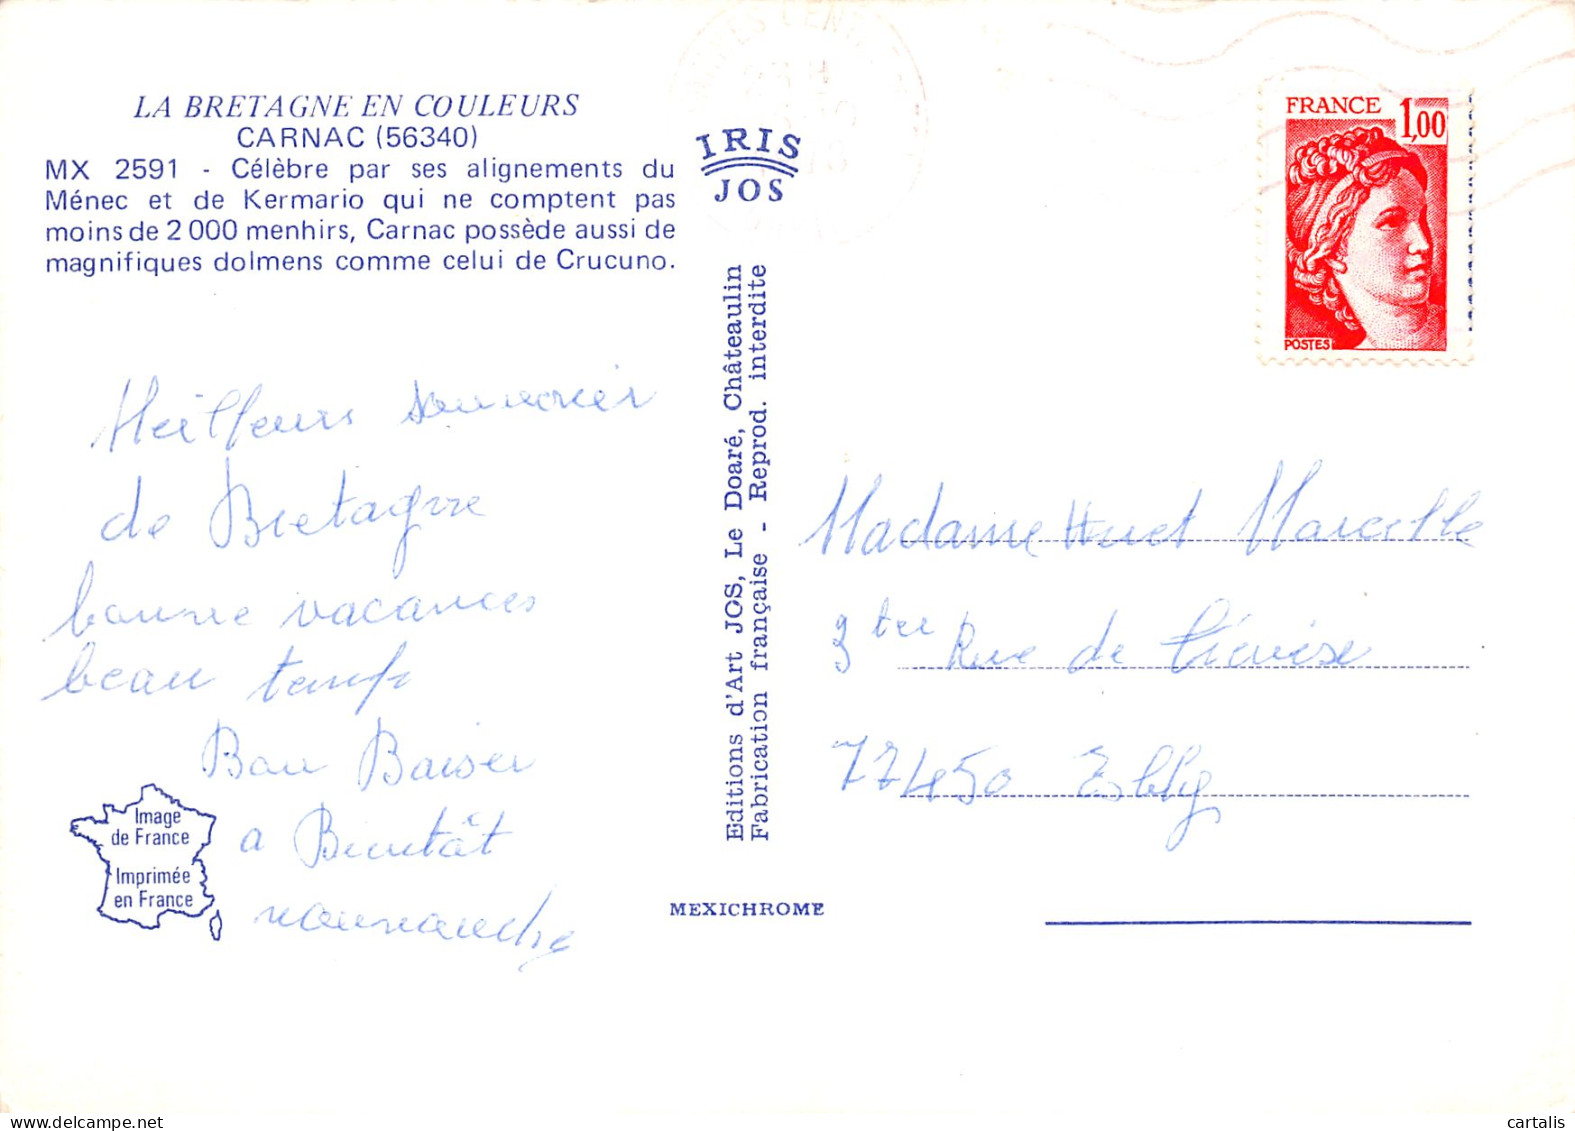 LA BRETAGNE EN COULEURS
CARNAC (56340)
MX 2591 - Célèbre par ses alignements du
Ménec et de Kermario qui ne comptent pas
moins de 2 000 menhirs, Carnac possède aussi de
magnifiques dolmens comme celui de Crucuno.
Meilleurs souvenir
de Bretagne
bonne vacances
beau temps
Bon Baiser
a Bientôt
Image
de France
Imprimée
en France
IRIS
JOS
Editions d'Art JOS, Le Doaré, Châteaulin
Fabrication française - Reprod. interdite
MEXICHROME
FRANCE 1,00
POSTES
Madame Huet Marcelle
3 ter Rue de
77450 Esbly
cartalis